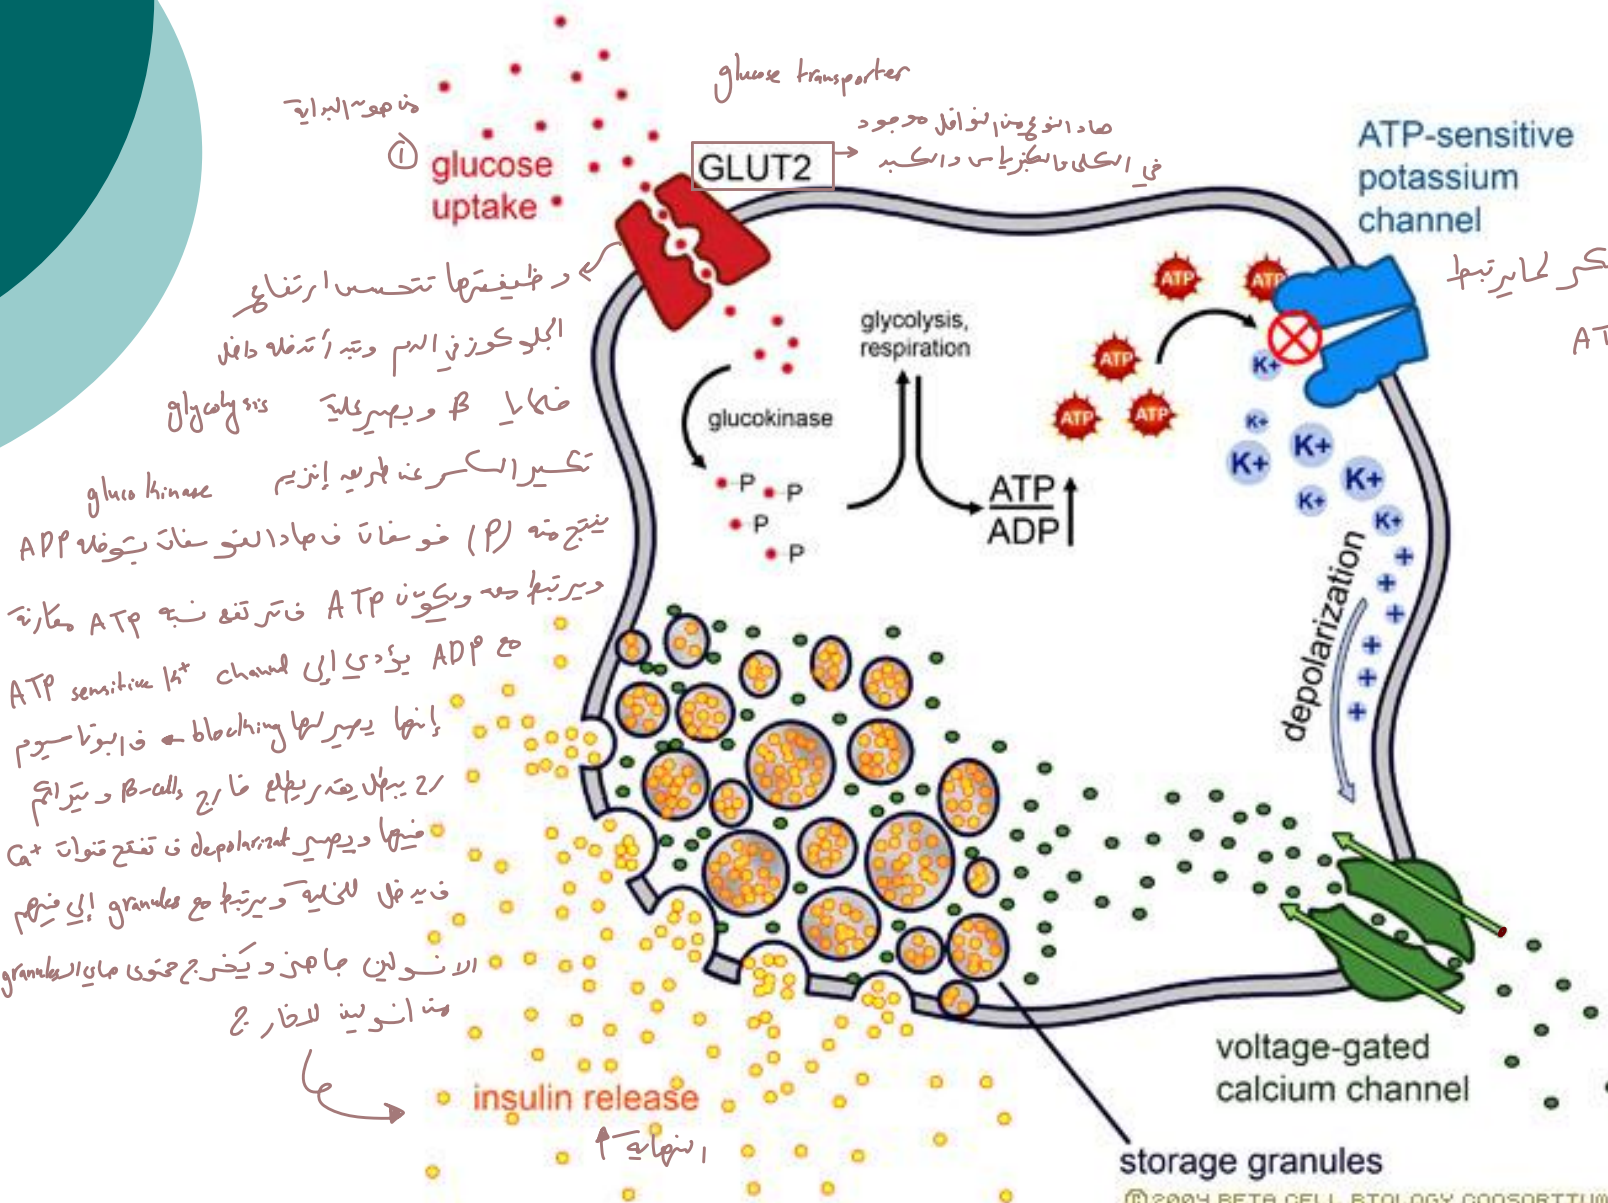 glucose transporter
من هون البداية
①
glucose
uptake
GLUT2
هاد النوع من النواقل موجود
في الكلى والبنكرياس والكبد
ATP-sensitive
potassium
channel
لما يرتبط
وظيفتها تتحسس ارتفاع
الجلوكوز في الدم وتبدأ تدخله داخل
خلايا β ويصير عليه glycolysis
تكسير السكر عن طريق إنزيم
glucokinase
ينتج منه (P) فوسفات ف هاد الفوسفات بتوخذه ADP
ويرتبط معه ويكون ATP فترتفع نسبة ATP مقارنة
مع ADP يؤدي إلى ATP sensitive K+ channel
إنها يصير لها blocking ف البوتاسيوم
رح يبطل يقدر يطلع خارج β-cells ويتراكم
فيها ويصير depolarizat ف تفتح قنوات Ca+
فيدخل للخلية ويرتبط مع granules إلي فيهم
الانسولين جاهز ويخرج محتوى هاي الgranules
من انسولين لاخارج
glycolysis,
respiration
glucokinase
ATP
ATP
ATP
ATP
ATP
-P
-P
-P
-P
ATP
ADP
K+
K+
K+
K+
K+
K+
K+
depolarization
insulin release
النهاية
voltage-gated
calcium channel
storage granules
©2004 BETA CELL BIOLOGY CONSORTIUM